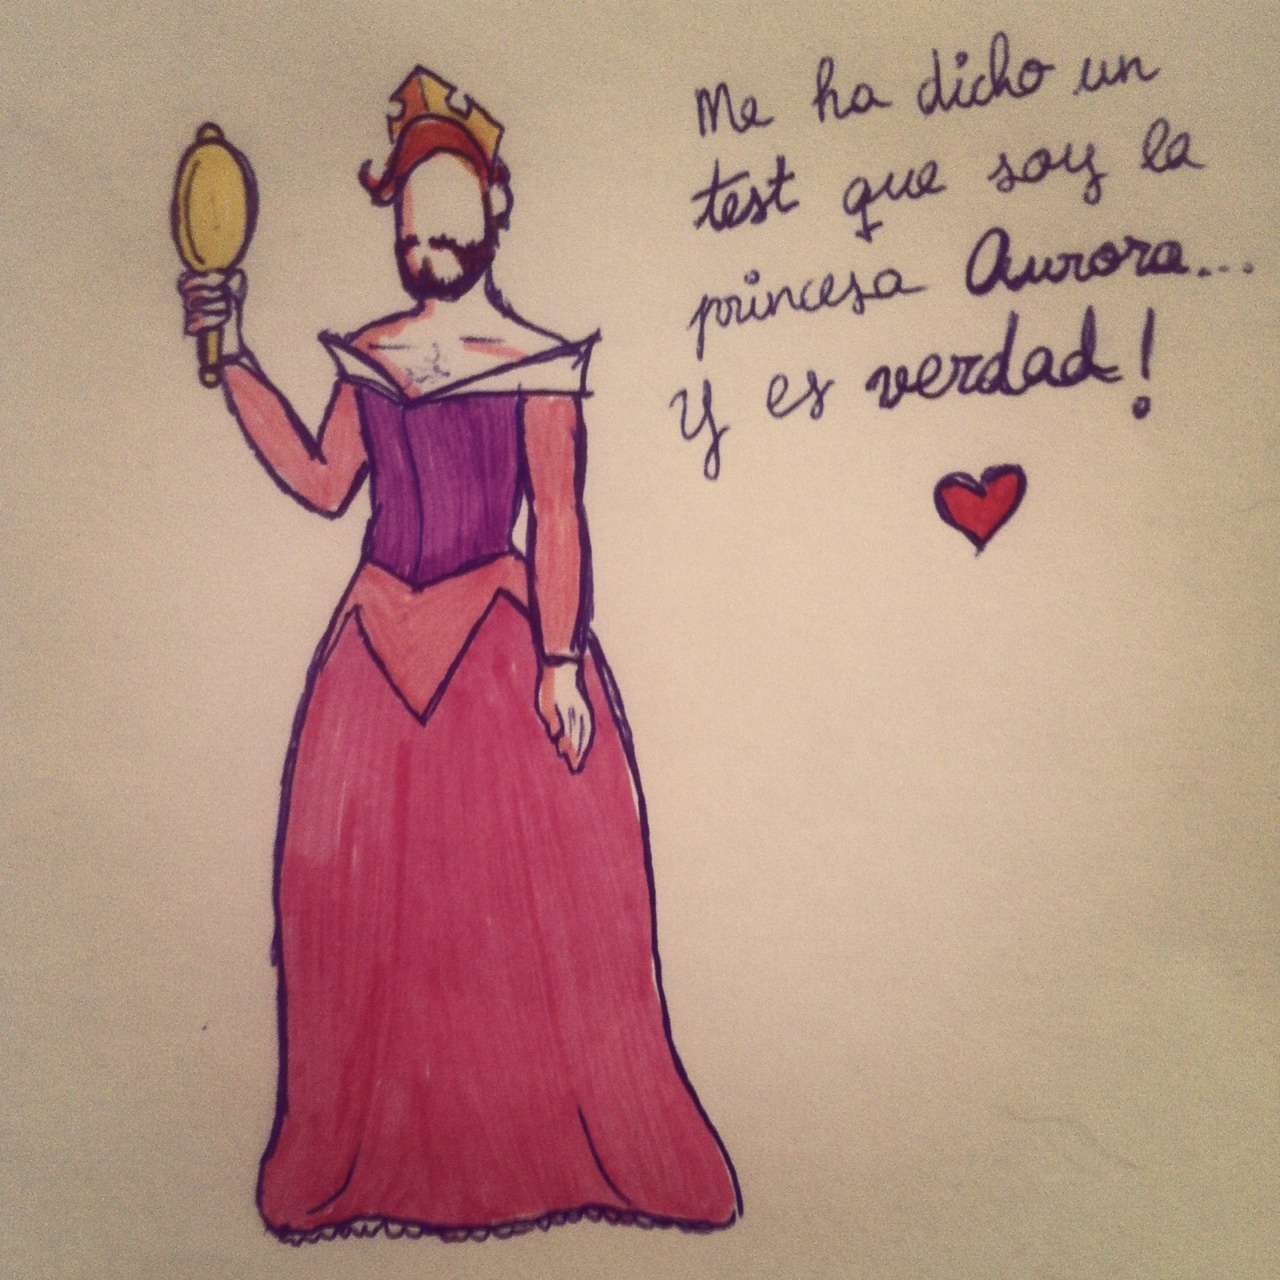 Me ha dicho un
test que soy la
princesa Aurora...
Y es verdad!